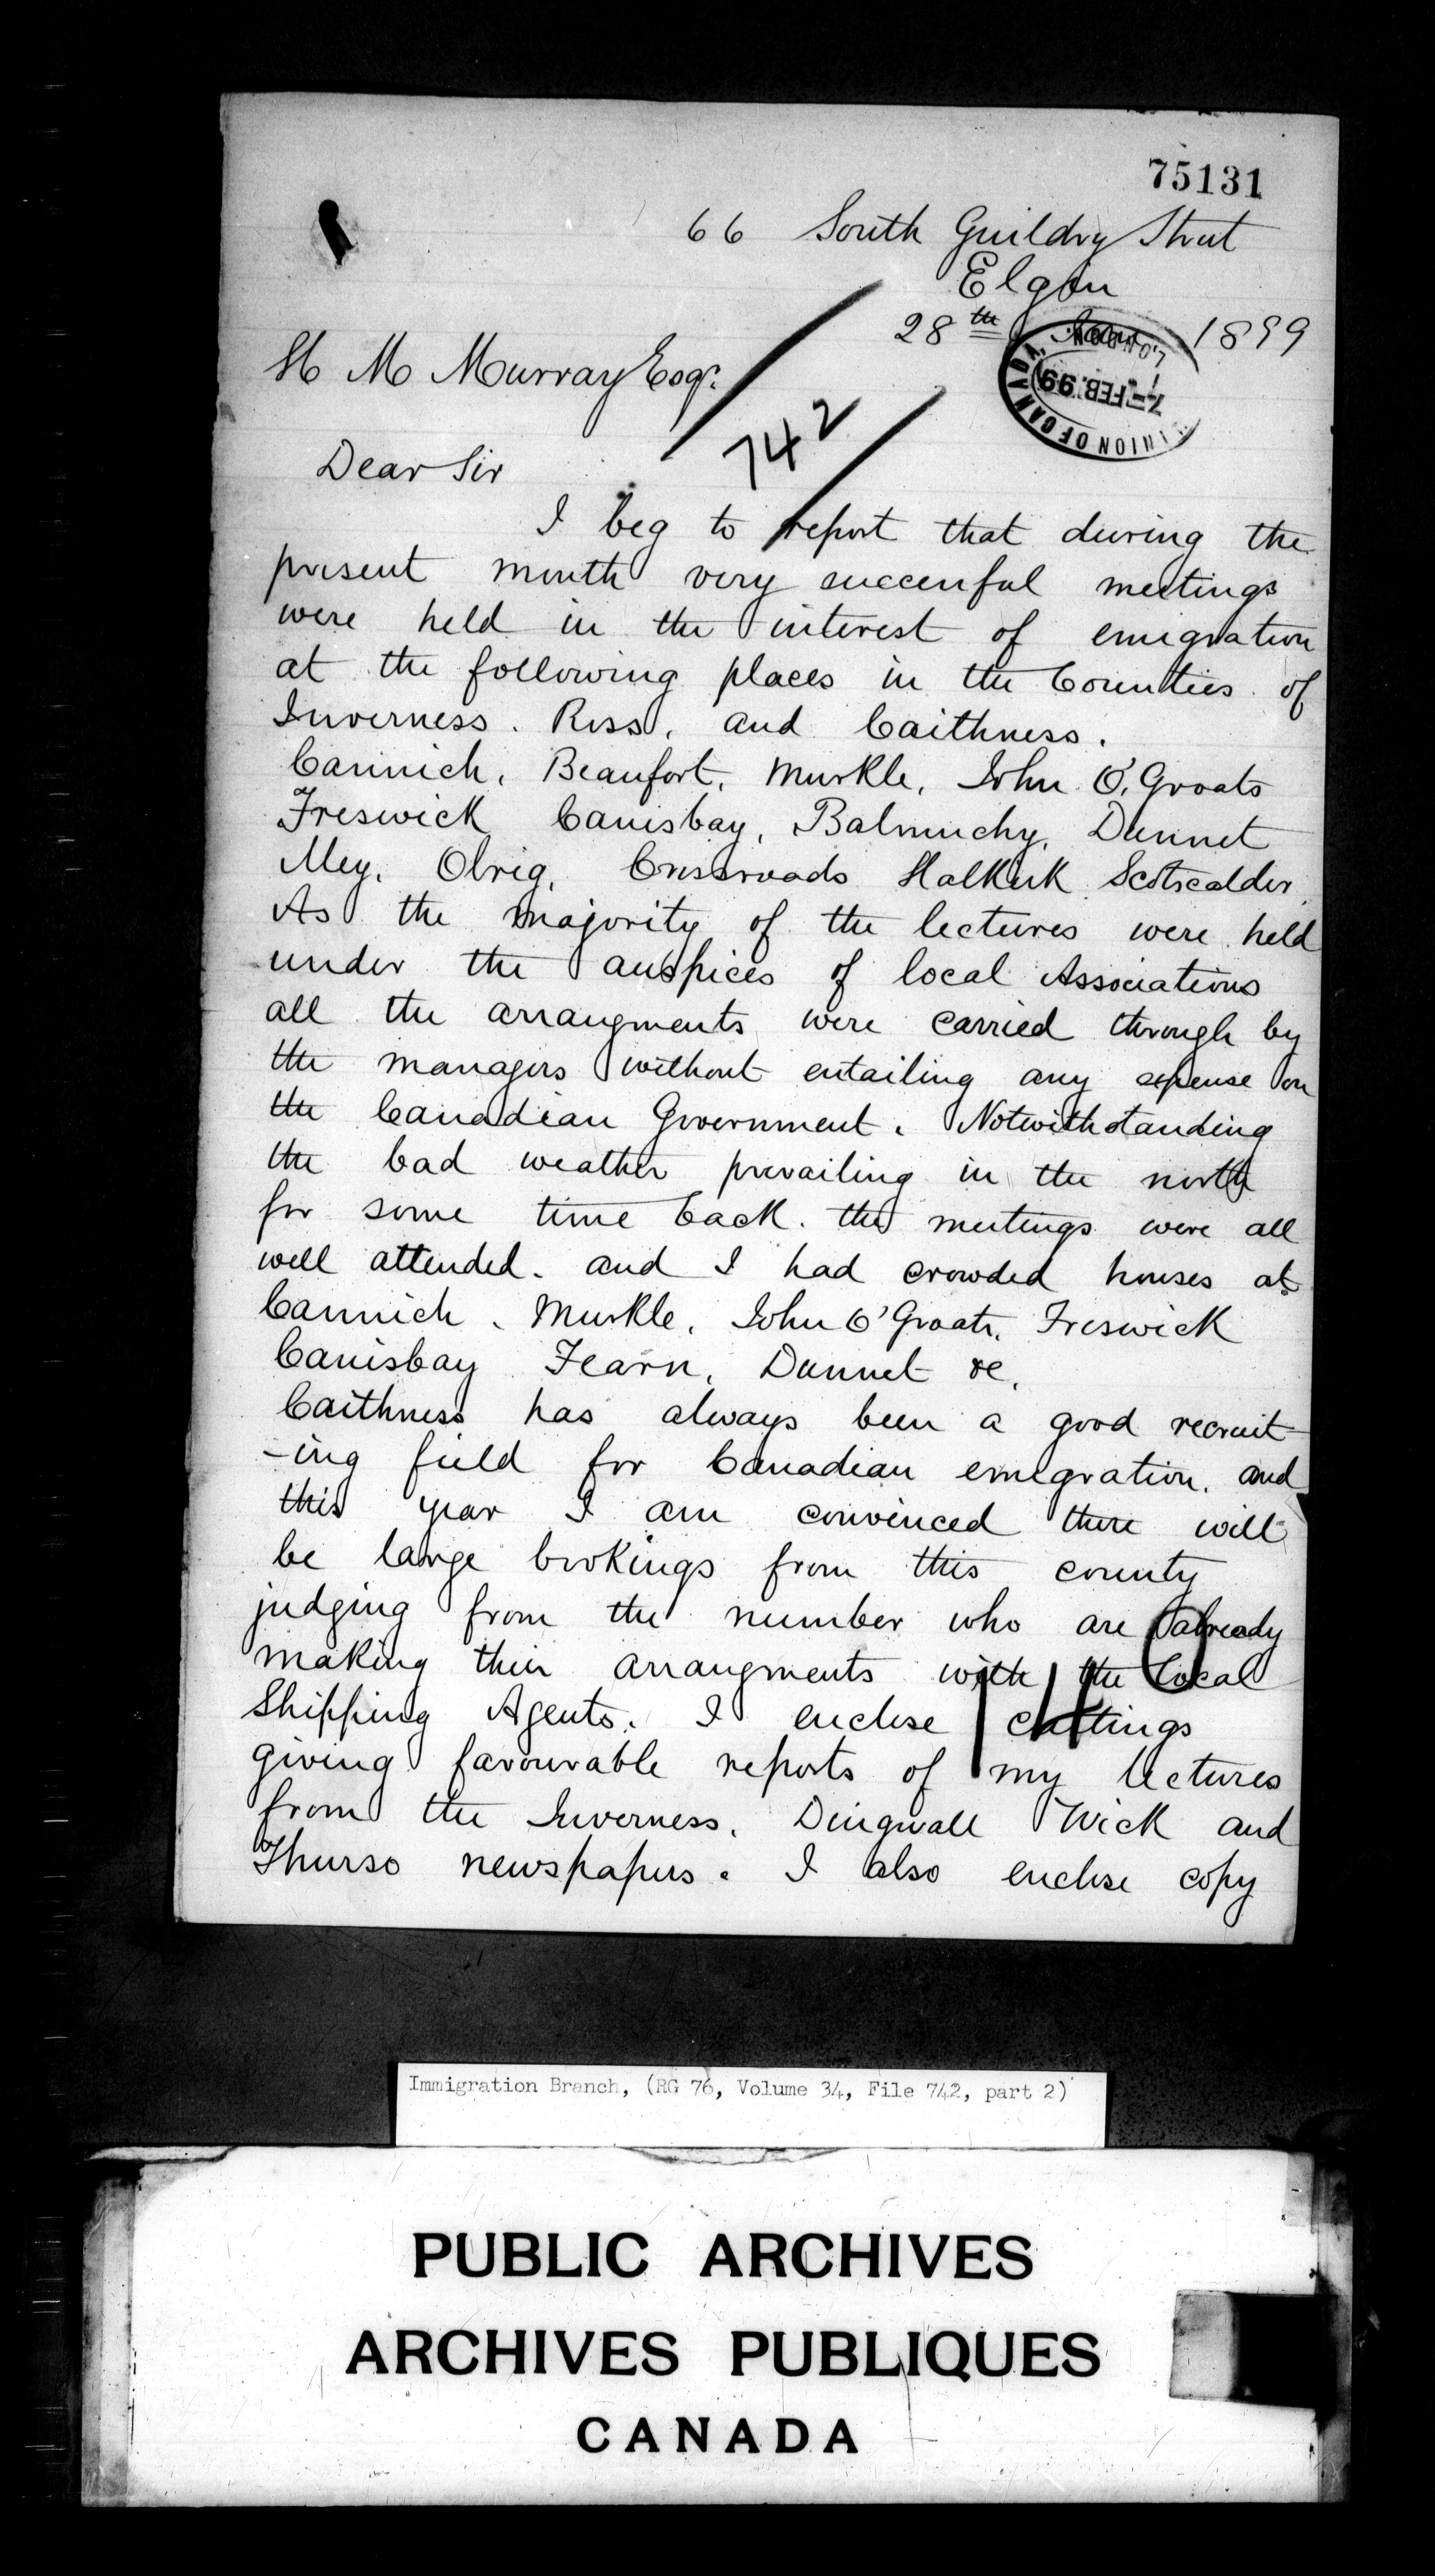 75131
66 South Guildry Street
Elgin
28th Jany 1899
DOMINION OF CANADA, LONDON
7-FEB.99
H M Murray Esqr.
742
Dear Sir
I beg to report that during the
present month very successful meetings
were held in the interest of emigration
at the following places in the Counties of
Inverness. Ross, and Caithness.
Cannich, Beaufort, Murkle, John O'Groats
Freswick Canisbay, Balmuchy, Dunnet
Mey, Olrig, Crossroads Halkirk Scotscalder
As the majority of the lectures were held
under the auspices of local Associations
all the arrangments were carried through by
the managers without entailing any expense on
the Canadian Government. Notwithstanding
the bad weather prevailing in the north
for some time back. the meetings were all
well attended. and I had crowded houses at
Cannich, Murkle, John O'Groats, Freswick
Canisbay Fearn, Dunnet &c.
Caithness has always been a good recruit-
-ing field for Canadian emigration, and
this year I am convinced there will
be large bookings from this county
judging from the number who are already
making their arrangments with the local
Shipping Agents. I enclose cuttings
giving favourable reports of my lectures
from the Inverness, Dingwall Wick and
Thurso newspapers. I also enclose copy
Immigration Branch, (RG 76, Volume 34, File 742, part 2)
PUBLIC ARCHIVES
ARCHIVES PUBLIQUES
CANADA